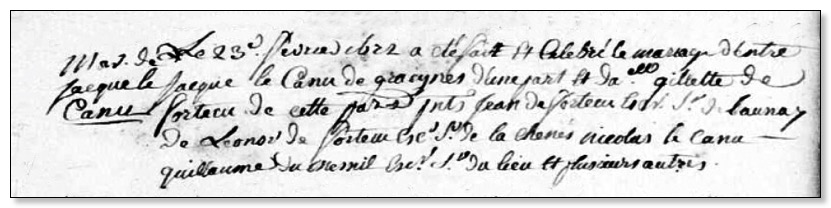 Mar. de Le 23e. février 1622 a été fait et célébré le mariage d'entre
jacque le jacque le Canu de gracynes d'une part et dalle gillette de
Canu Sortecu de cette pars. pnts. jean de Sortecu Sr. de launay
de Leonor de Sortecu Escr. Sr. de la nicolas le canu
guillaume du mesnil Escr. Sr. du lieu et plusieurs autres.